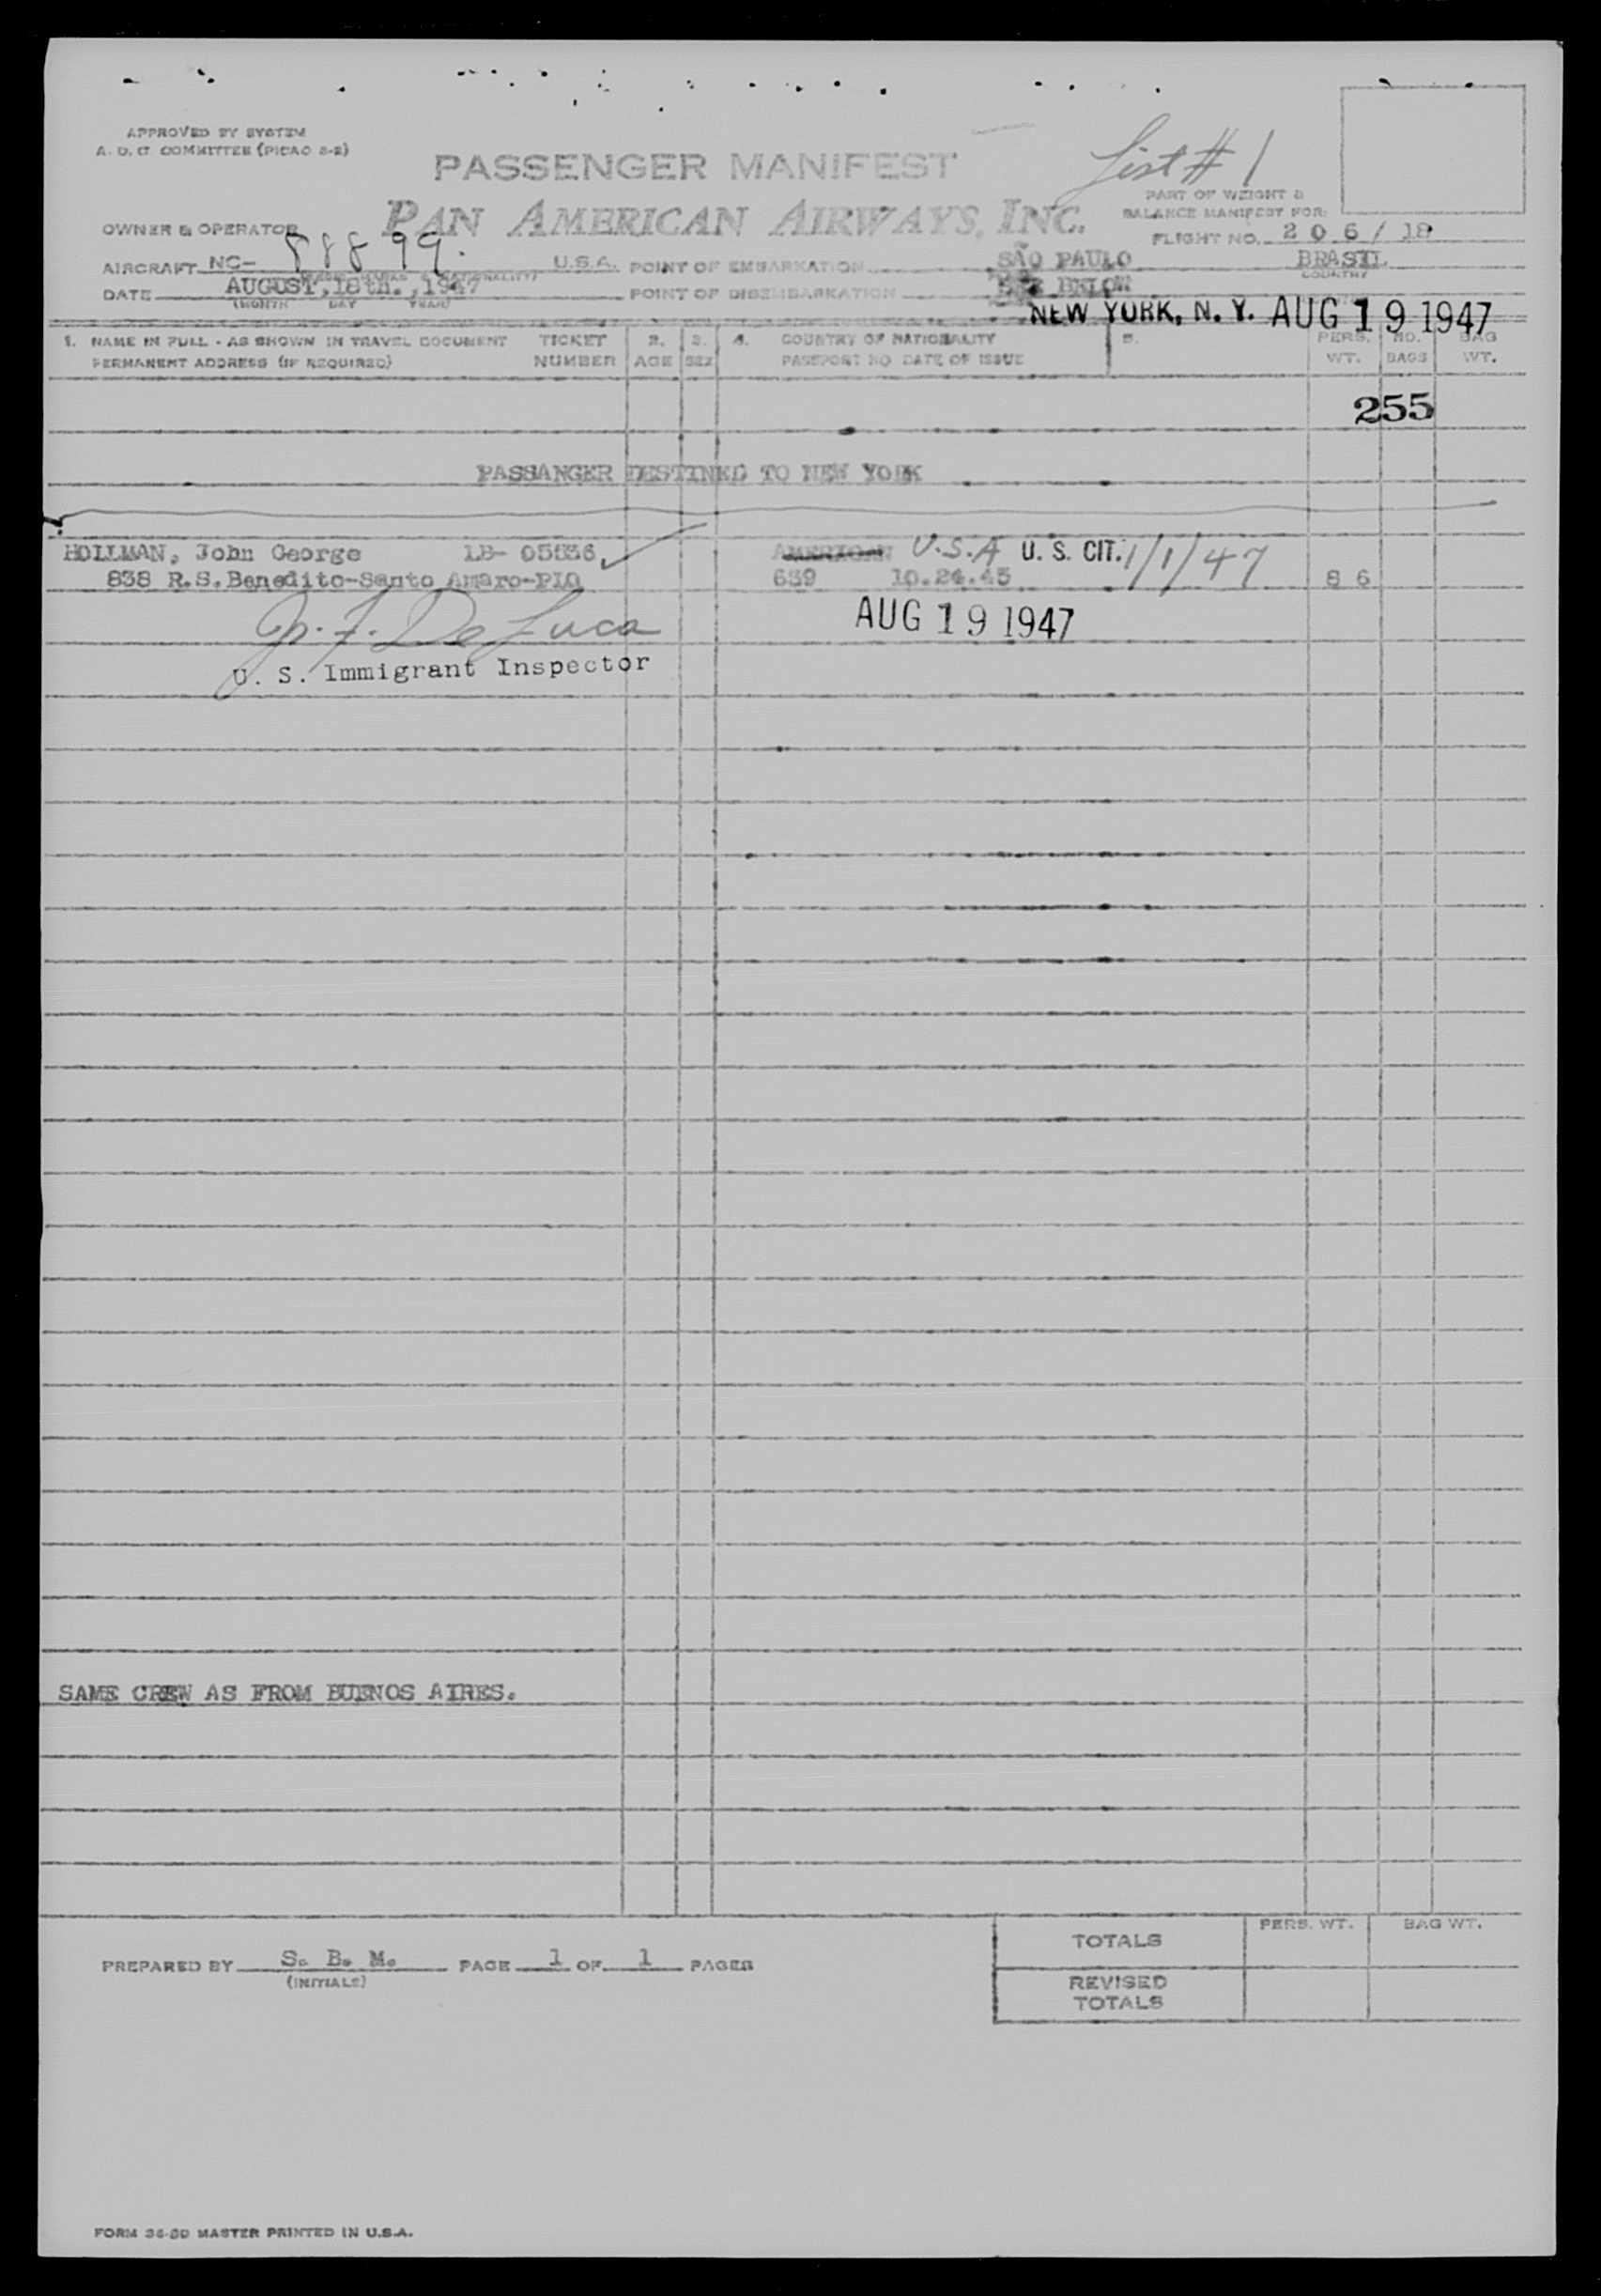 APPROVED BY SYSTEM
A. D. C COMMITTEE (PICAO 2-2)
PASSENGER MANIFEST
List # 1
PART OF WEIGHT &
BALANCE MANIFEST FOR:
OWNER & OPERATOR PAN AMERICAN AIRWAYS, INC.
FLIGHT NO. 206/18
AIRCRAFT NC- 88899. U.S.A. POINT OF EMBARKATION SÃO PAULO BRASIL
COUNTRY
DATE AUGUST, 18th., 1947 POINT OF DISEMBARKATION
(MONTH DAY YEAR)
NEW YORK, N. Y. AUG 19 1947
1. NAME IN FULL - AS SHOWN IN TRAVEL DOCUMENT TICKET 2. 3. 4. COUNTRY OF NATIONALITY 5. PERS. NO. BAG
PERMANENT ADDRESS (IF REQUIRED) NUMBER AGE SEX PASSPORT NO DATE OF ISSUE WT. BAGS WT.
255
PASSANGER DESTINED TO NEW YORK
HOLLMAN, John George LB- AMERICAN U.S.A U. S. CIT. 1/1/47
838 R.S.Benedito-Santo Amaro- 639 86
AUG 19 1947
De Luca
U. S. Immigrant Inspector
SAME CREW AS FROM BUENOS AIRES.
PERS. WT. BAG WT.
TOTALS
PREPARED BY S. B. M. PAGE 1 OF 1 PAGES
(INITIALS)
REVISED
TOTALS
FORM MASTER PRINTED IN U.S.A.